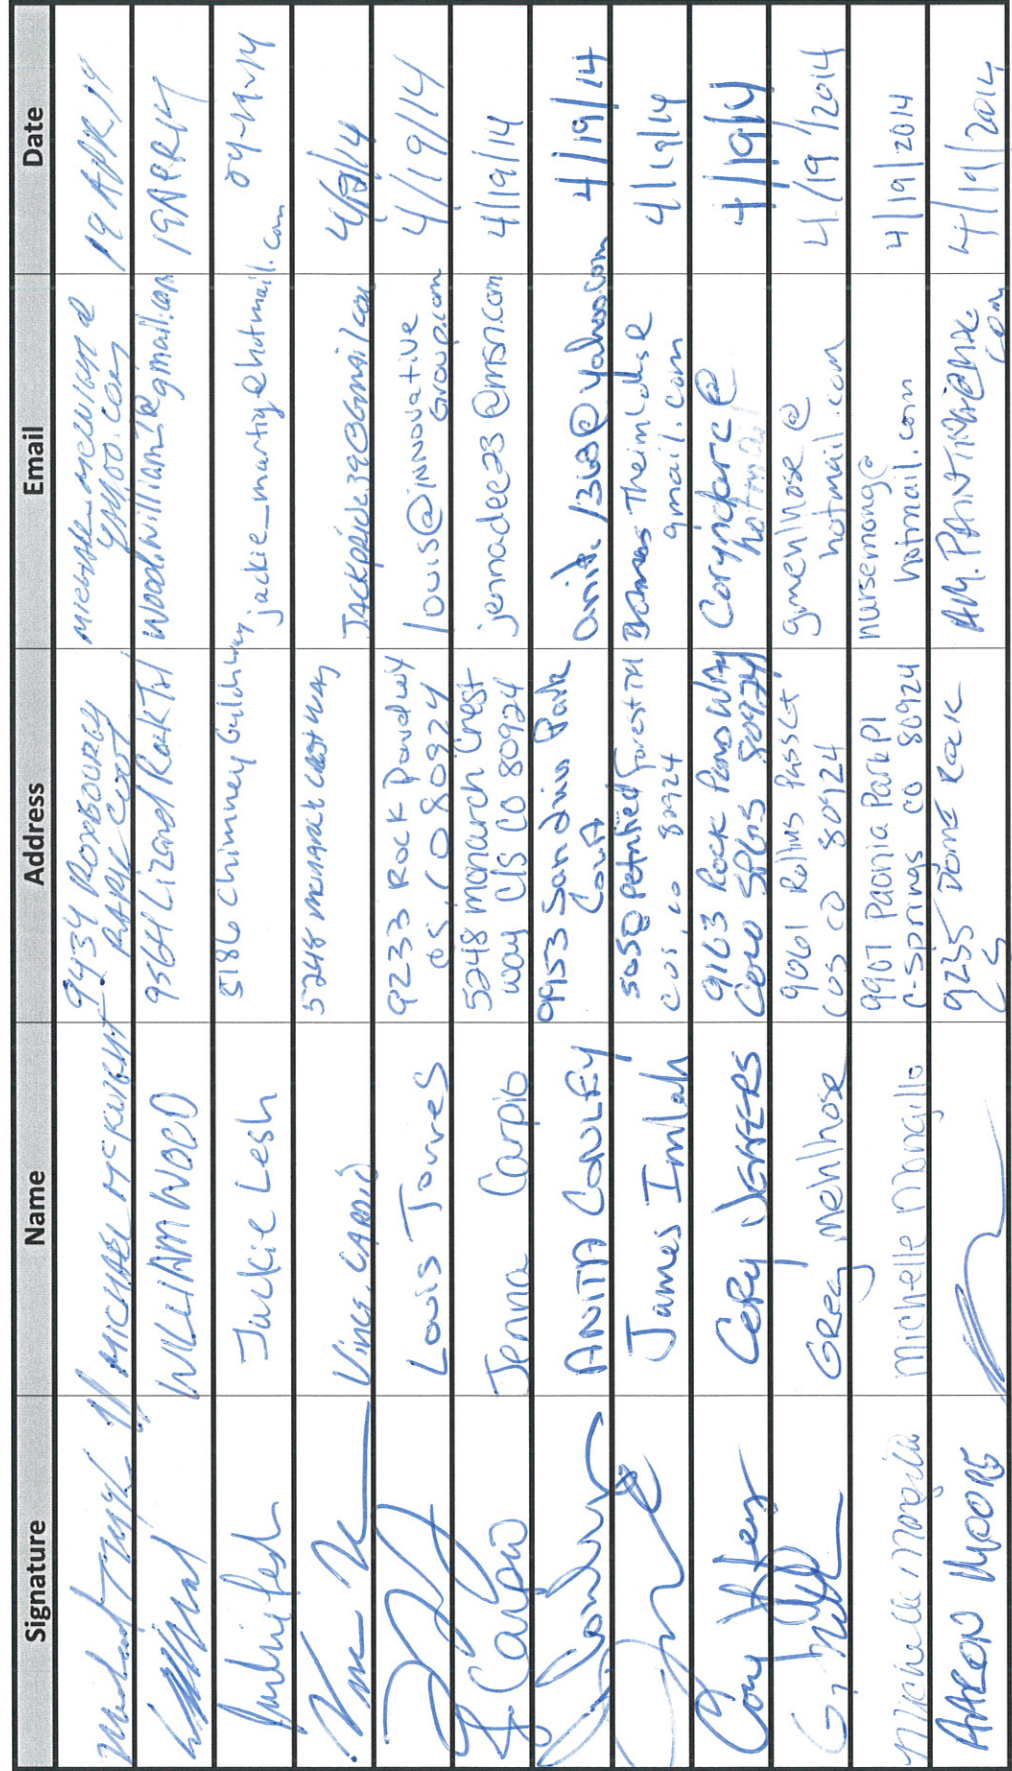 Signature Name Address Email Date
MICHAEL MCKNIGHT 9434 ROXBOROUGH
PARK COURT
YAHOO.COM 19 APR 14
WILLIAM WOOD 9564 Lizard Rock Trl woodwilliam1@gmail.com 19APR14
Jackie Lesh 5186 Chimney Gulch way jackie_martin@hotmail.com 04-19-14
Vince CARPIO 5248 monarch crest way 4/19/14
Louis Torres 9233 Rock Pond wy
CS, CO 80924
louis@innovative
Group.com 4/19/14
J. Carpio Jenna Carpio 5248 monarch crest
way C/S CO 80924
jennadee23@msn.com 4/19/14
ANITA CONLEY 9953 San Luis Park
Court
4/19/14
James Imlah 5050 Petrified Forest Trl
COS, CO 80924
James Theimlahs@
gmail.com 4/19/14
CORY JEFFERS 9163 Rock Pond WAY
COLO SPGS 80924
@
hotmail 4/19/14
Greg Mehlhose 9061 Rollins Pass Ct
COS CO 80924
gmehlhose@
hotmail.com 4/19/2014
Michelle Mongillo Michelle Mongillo 9967 Paonia Park Pl
C-Springs CO 80924
nursemong@
hotmail.com 4/19/2014
AARON MOORE 9255 DOME ROCK
CS
4/19/2014